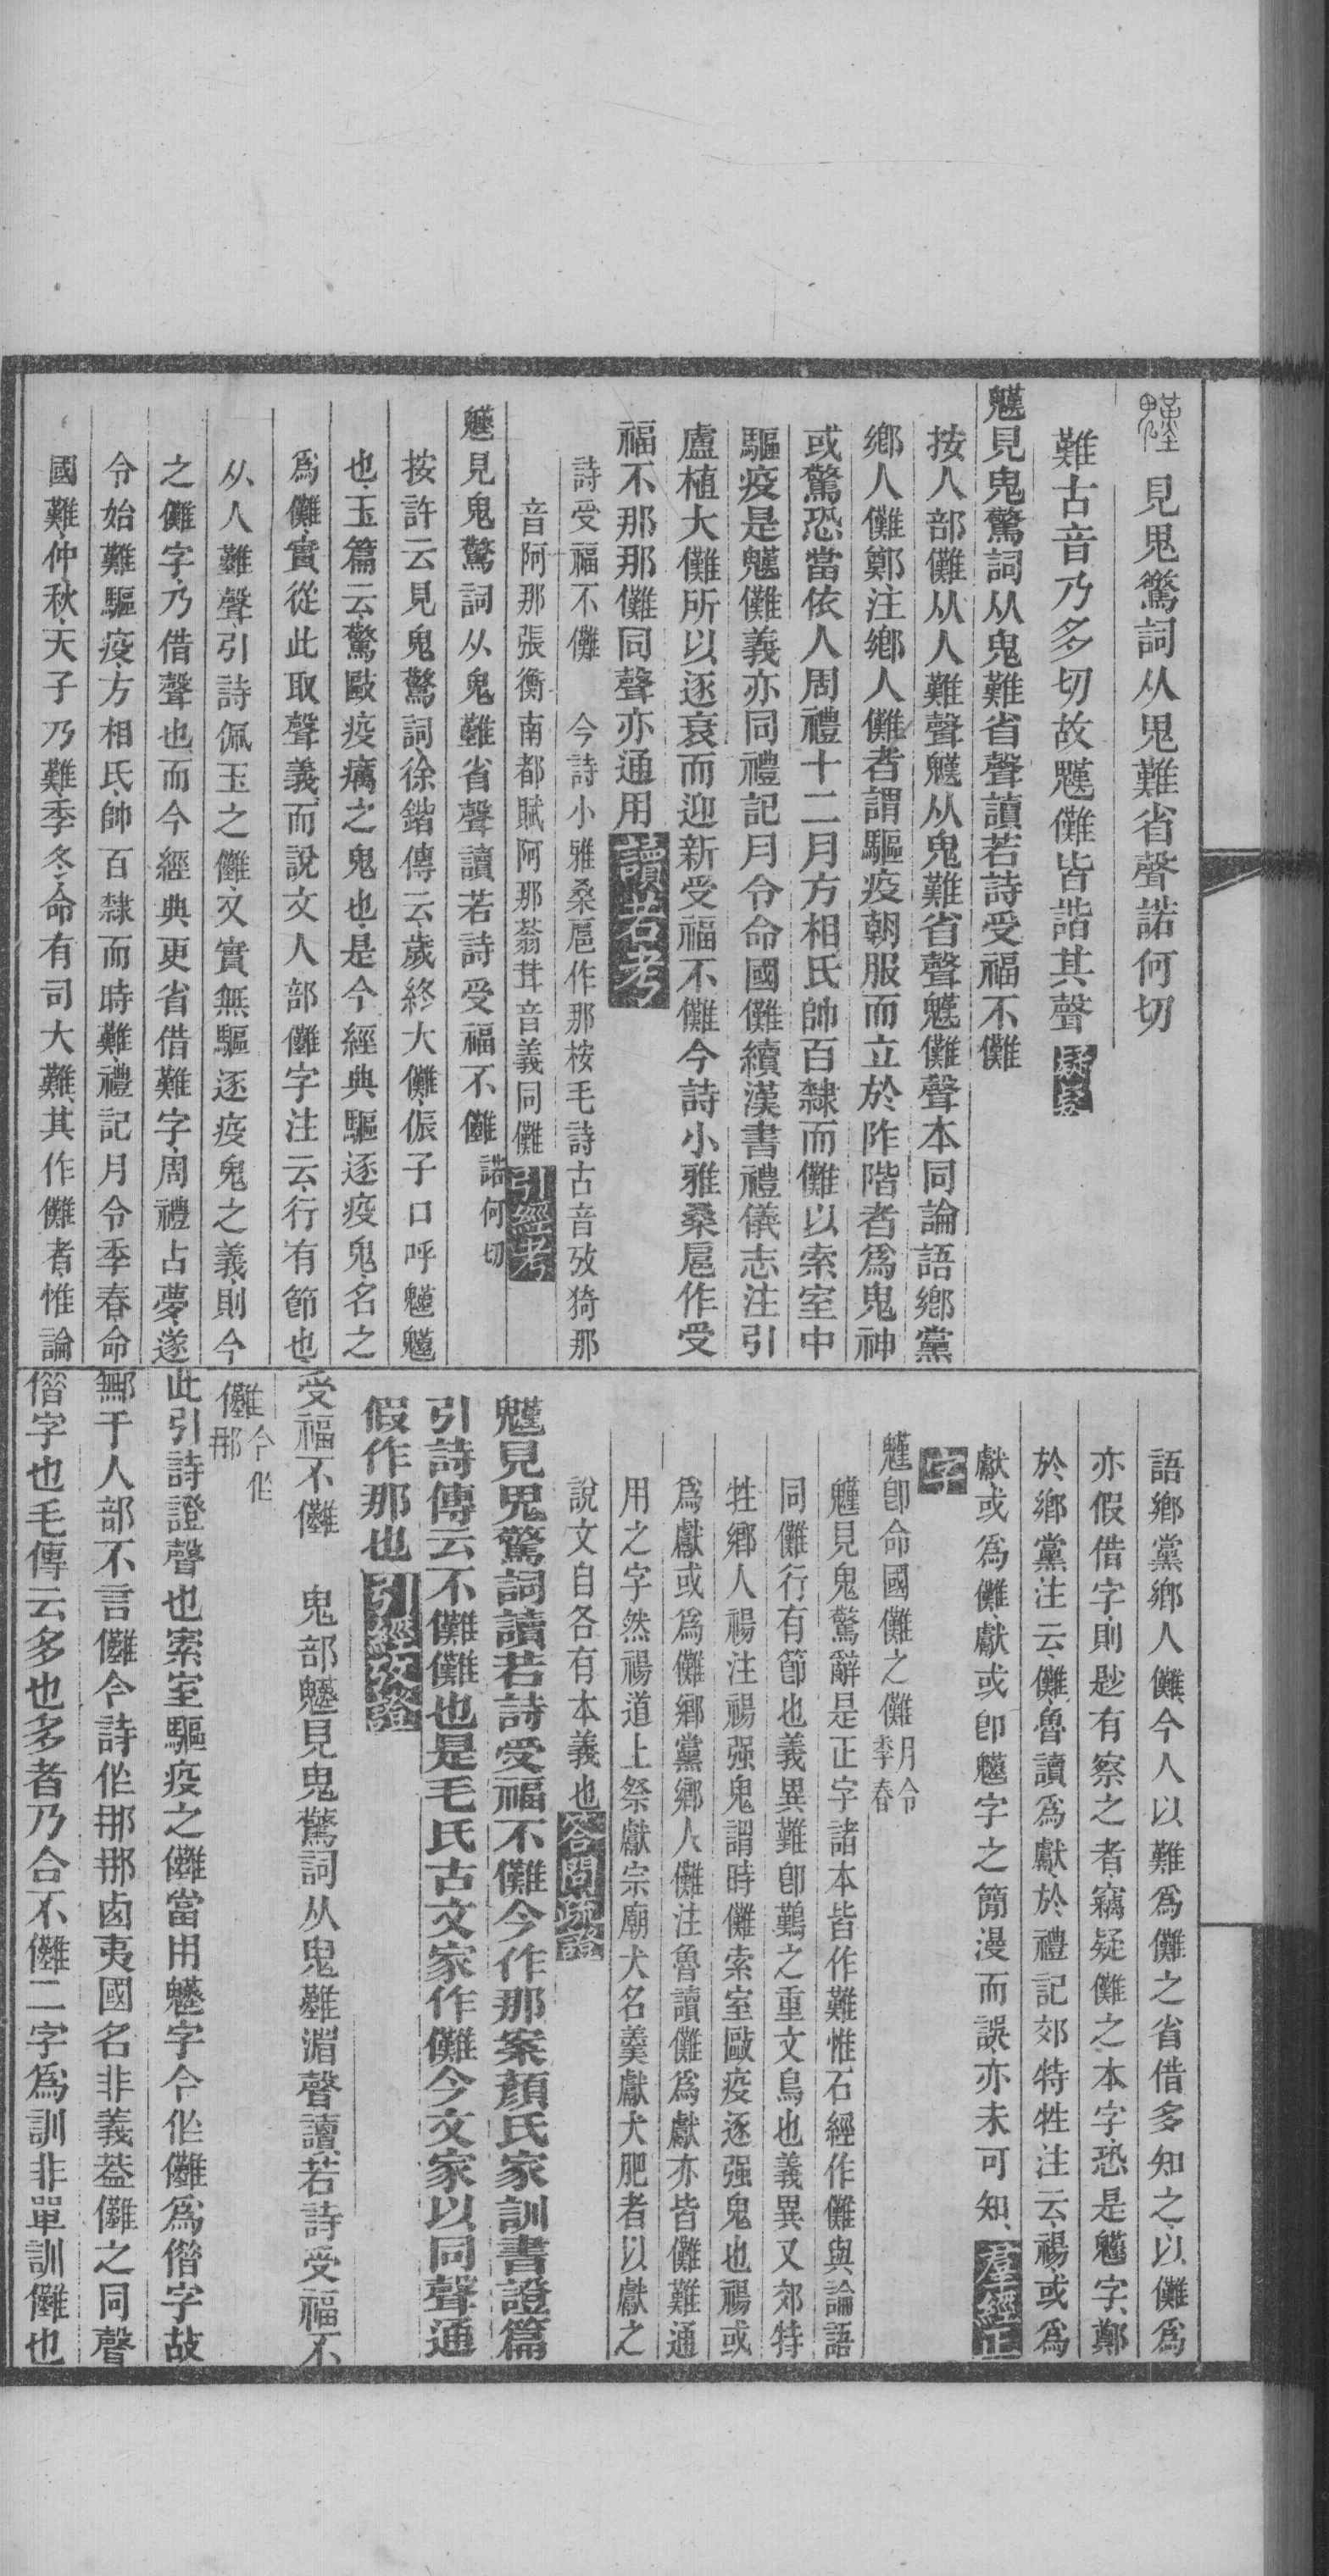 見鬼驚詞从鬼難省聲諾何切
難古音乃多切故魌儺皆諧其聲疑疑
魌見鬼驚詞从鬼難省聲讀若詩受福不儺
按人部儺从人難聲魌从鬼難省聲魌儺聲本同論語鄉黨
鄉人儺鄭注鄉人儺者謂驅疫朝服而立於阼階者爲鬼神
或驚恐當依人周禮十二月方相氏帥百隸而儺以索室中
驅疫是魌儺義亦同禮記月令命國儺續漢書禮儀志注引
盧植大儺所以逐衰而迎新受福不儺今詩小雅桑扈作受
福不那那儺同聲亦通用讀若考
詩受福不儺　今詩小雅桑扈作那桉毛詩古音攷猗那
音阿那張衡南都賦阿那蓊茸音義同儺引經考
見鬼驚詞从鬼難省聲讀若詩受福不儺諾何切
按許云見鬼驚詞徐鍇傳云歲終大儺侲子口呼
也玉篇云驚敺疫癘之鬼也是今經典驅逐疫鬼名之
爲儺實從此取聲義而說文人部儺字注云行有節也
从人難聲引詩佩玉之儺又實無驅逐疫鬼之義則今
之儺字乃借聲也而今經典更省借難字周禮占夢遂
令始難驅疫方相氏帥百隸而時難禮記月令季春命
國難仲秋天子乃難季冬命有司大難其作儺者惟論
語鄉黨鄉人儺今人以難爲儺之省借多知之以儺爲
亦假借字則尟有察之者竊疑儺之本字恐是字鄭
於鄉黨注云儺魯讀爲獻於禮記郊特牲注云禓或爲
獻或爲儺獻或卽字之簡漫而誤亦未可知羣經正
字
卽命國儺之儺月令季春
見鬼驚辭是正字諸本皆作難惟石經作儺與論語
同儺行有節也義異難卽鷬之重文鳥也義異又郊特
牲鄉人禓注禓强鬼謂時儺索室敺疫逐强鬼也禓或
爲獻或爲儺鄉黨鄉人儺注魯讀儺爲獻亦皆儺難通
用之字然禓道上祭獻宗廟犬名羹獻犬肥者以獻之
說文自各有本義也答問疏證
見鬼驚詞讀若詩受福不儺今作那案顏氏家訓書證篇
引詩傳云不儺儺也是毛氏古文家作儺今文家以同聲通
假作那也引經攷證
受福不儺　鬼部見鬼驚詞从鬼難省聲讀若詩受福不
儺今作那
此引詩證聲也索室驅疫之儺當用字今作儺爲借字故
于人部不言儺今詩作那那西夷國名非義葢儺之同聲
借字也毛傳云多也多者乃合不儺二字爲訓非單訓儺也